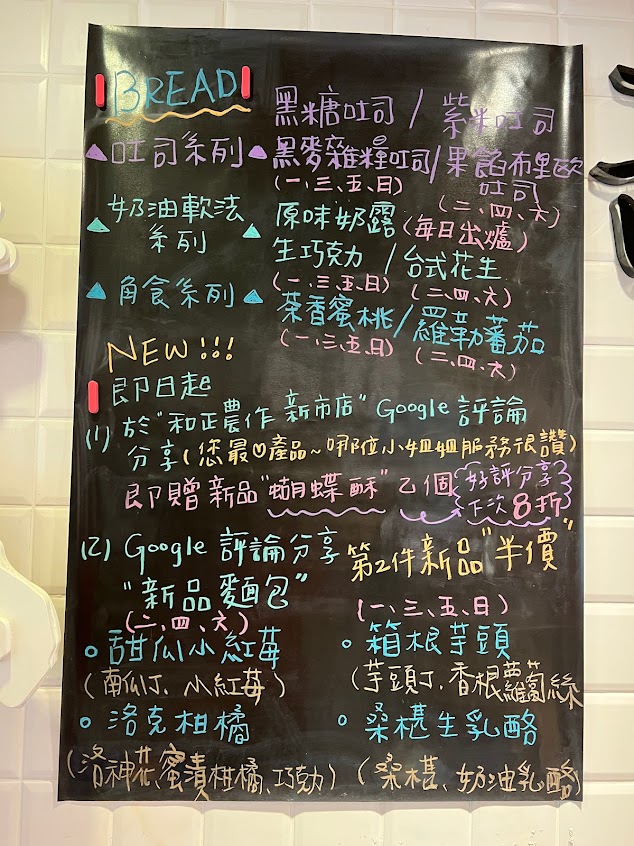 BREAD
黑糖吐司 / 紫米吐司
吐司系列 黑麥雜糧吐司/果餡布里歐吐司
(一、三、五、日) (二、四、六)
奶油軟法系列 原味奶露(每日出爐)
生巧克力 / 台式花生
(一、三、五、日) (二、四、六)
角食系列 茶香蜜桃/羅勒蕃茄
(一、三、五、日) (二、四、六)
NEW!!!
即日起
(1) 於"和正農作 新市店" Google 評論
分享(您最♡產品~哪位小姐姐服務很讚)
即贈新品"蝴蝶酥"乙個 好評分享 下次8折
(2) Google 評論分享 第2件新品"半價"
"新品麵包"
(二、四、六) (一、三、五、日)
甜瓜小紅莓 箱根芋頭
(南瓜丁、小紅莓) (芋頭丁、香根蘿蔔絲)
洛克柑橘 桑椹生乳酪
(洛神花、蜜漬柑橘、巧克力) (桑椹、奶油乳酪)